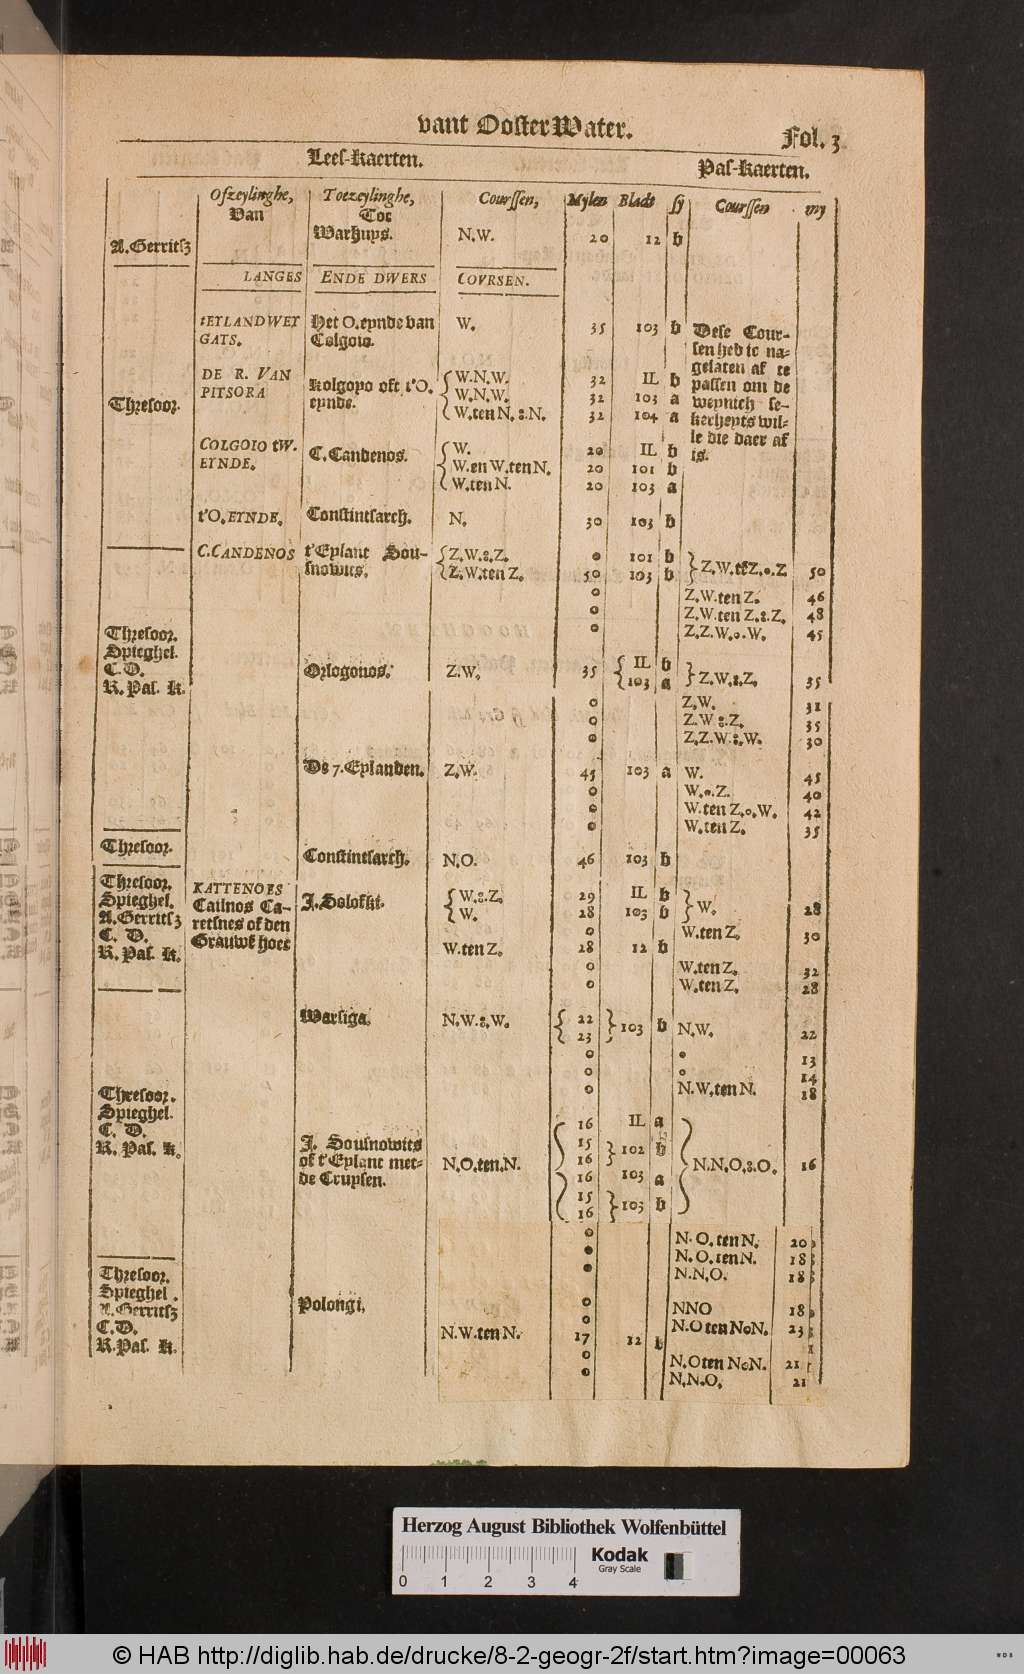 vant OosterWater.
Fol. 3.
Lees-kaerten.
Pas-kaerten.
Ofzeylinghe, Toezeylinghe, Courssen, Mylen Bladt sy Courssen my
Van Tot
A. Gerritsz Warhuys. N.W. 20 12 b
LANGES ENDE DWERS COVRSEN.
tEYLANDWEY Het O. eynde van W. 35 103 b Dese Cour-
GATS. Colgoio. sen heb ic na-
gelaten af te
DE R. VAN W.N.W. 32 IL b passen om de
PITSORA Kolgoyo oft t'O. W.N.W. 32 103 a weynich se-
Thresoor. eynde. W.ten N.:.N. 32 104 a kerheyts wil-
le die daer af
COLGOIO tW. C. Candenos. W. 20 IL b is.
EYNDE. W.en W.ten N. 20 101 b
W.ten N. 20 103 a
t'O. EYNDE. Constintsarch. N. 30 103 b
C. CANDENOS t'Eylant Sou- Z.W.:.Z. 101 b
snowits. Z.W.ten Z. 50 103 b Z.W.tkZ.o.Z 50
o Z.W.ten Z. 46
o Z.W.ten Z.:.Z. 48
Thresoor. o Z.Z.W.o.W. 45
Spieghel.
C. D. Orlogonos. Z.W. 35 IL b
R. Pas. K. 103 a Z.W.:.Z. 35
o Z.W. 31
o Z.W.:.Z. 35
o Z.Z.W.:.W. 30
De 7. Eylanden. Z.W. 45 103 a W. 45
o W.o.Z. 40
o W.ten Z.o.W. 42
o W.ten Z. 35
Thresoor. Constintsarch. N.O. 46 103 b
Thresoor. KATTENOES W.:.Z. 29 IL b
Spieghel. Catinos Ca- J. Solofki. W. 28 103 b W. 28
A. Gerritsz retsnes of den o W.ten Z. 30
C. D. Grauwe hoec W.ten Z. 28 12 b
R. Pas. K. o W.ten Z. 32
o W.ten Z. 28
Warsiga. N.W.:.W. 22 103 b N.W. 22
23
o o 13
o o 14
Thresoor. o N.W.ten N. 18
Spieghel.
C. D. 16 IL a
R. Pas. K. J. Sousnowits 15 102 b
of t'Eylant met- N.O.ten.N. 16 N.N.O.:.O. 16
de Cruysen. 16 103 a
15 103 b
16
o N.O.ten N. 20
o N.O.ten N. 18
Thresoor. o N.N.O. 18
Spieghel.
A. Gerritsz Polongi. o NNO 18
C. D. o N.O ten NoN. 23
R. Pas. K. N.W.ten N. 17 12 b
o N.O ten NoN. 21
o N.N.O. 21
Herzog August Bibliothek Wolfenbüttel
Kodak
Gray Scale
0 1 2 3 4
© HAB http://diglib.hab.de/drucke/8-2-geogr-2f/start.htm?image=00063